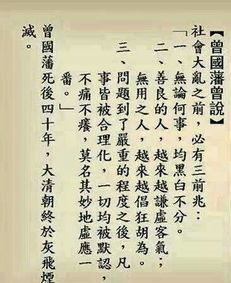 【曾國藩曾說】
社會大亂之前，必有三前兆：
「一、無論何事，均黑白不分。
二、善良的人，越來越謙虛客氣；
無用之人，越來越倡狂胡為。
三、問題到了嚴重的程度之後，凡
事皆被合理化，一切均被默認，
不痛不癢，莫名其妙地虛應一
番。」
曾國藩死後四十年，大清朝終於灰飛煙
滅。